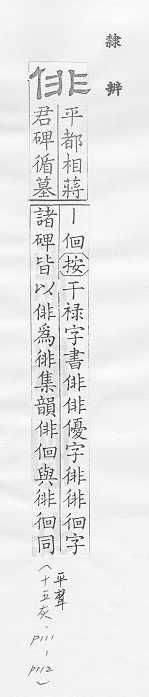 隸辨
俳
平都相蔣
君碑循墓
丨佪按干祿字書俳俳優字徘徘徊字
諸碑皆以俳爲徘集韻俳佪與徘徊同
平聲
(十五灰.P111-P112)